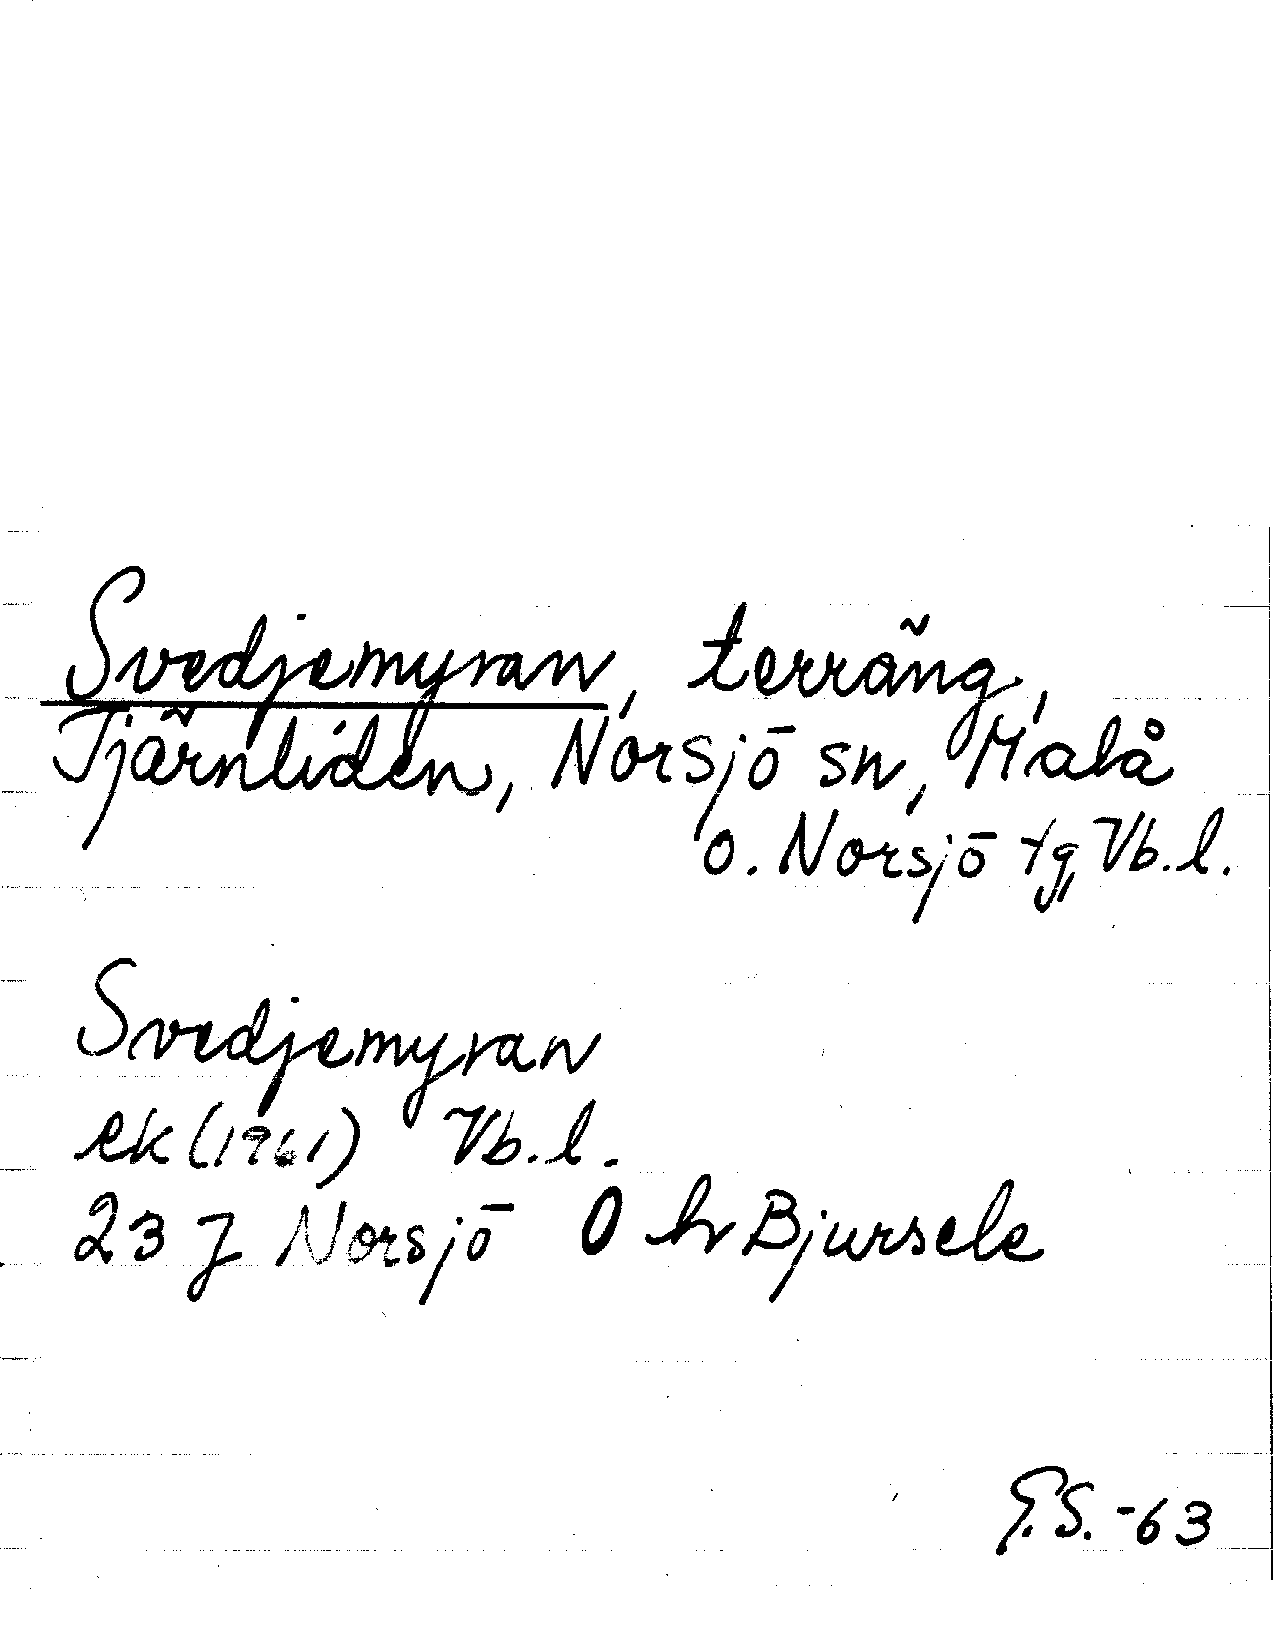 Svedjemyran, terräng,
Tjärnliden, Norsjö sn, Malå
o. Norsjö tg, Vb.l.
Svedjemyran
ek (1961) Vb.l.
23 J Norsjö 0 hr Bjursele
G.S. -63